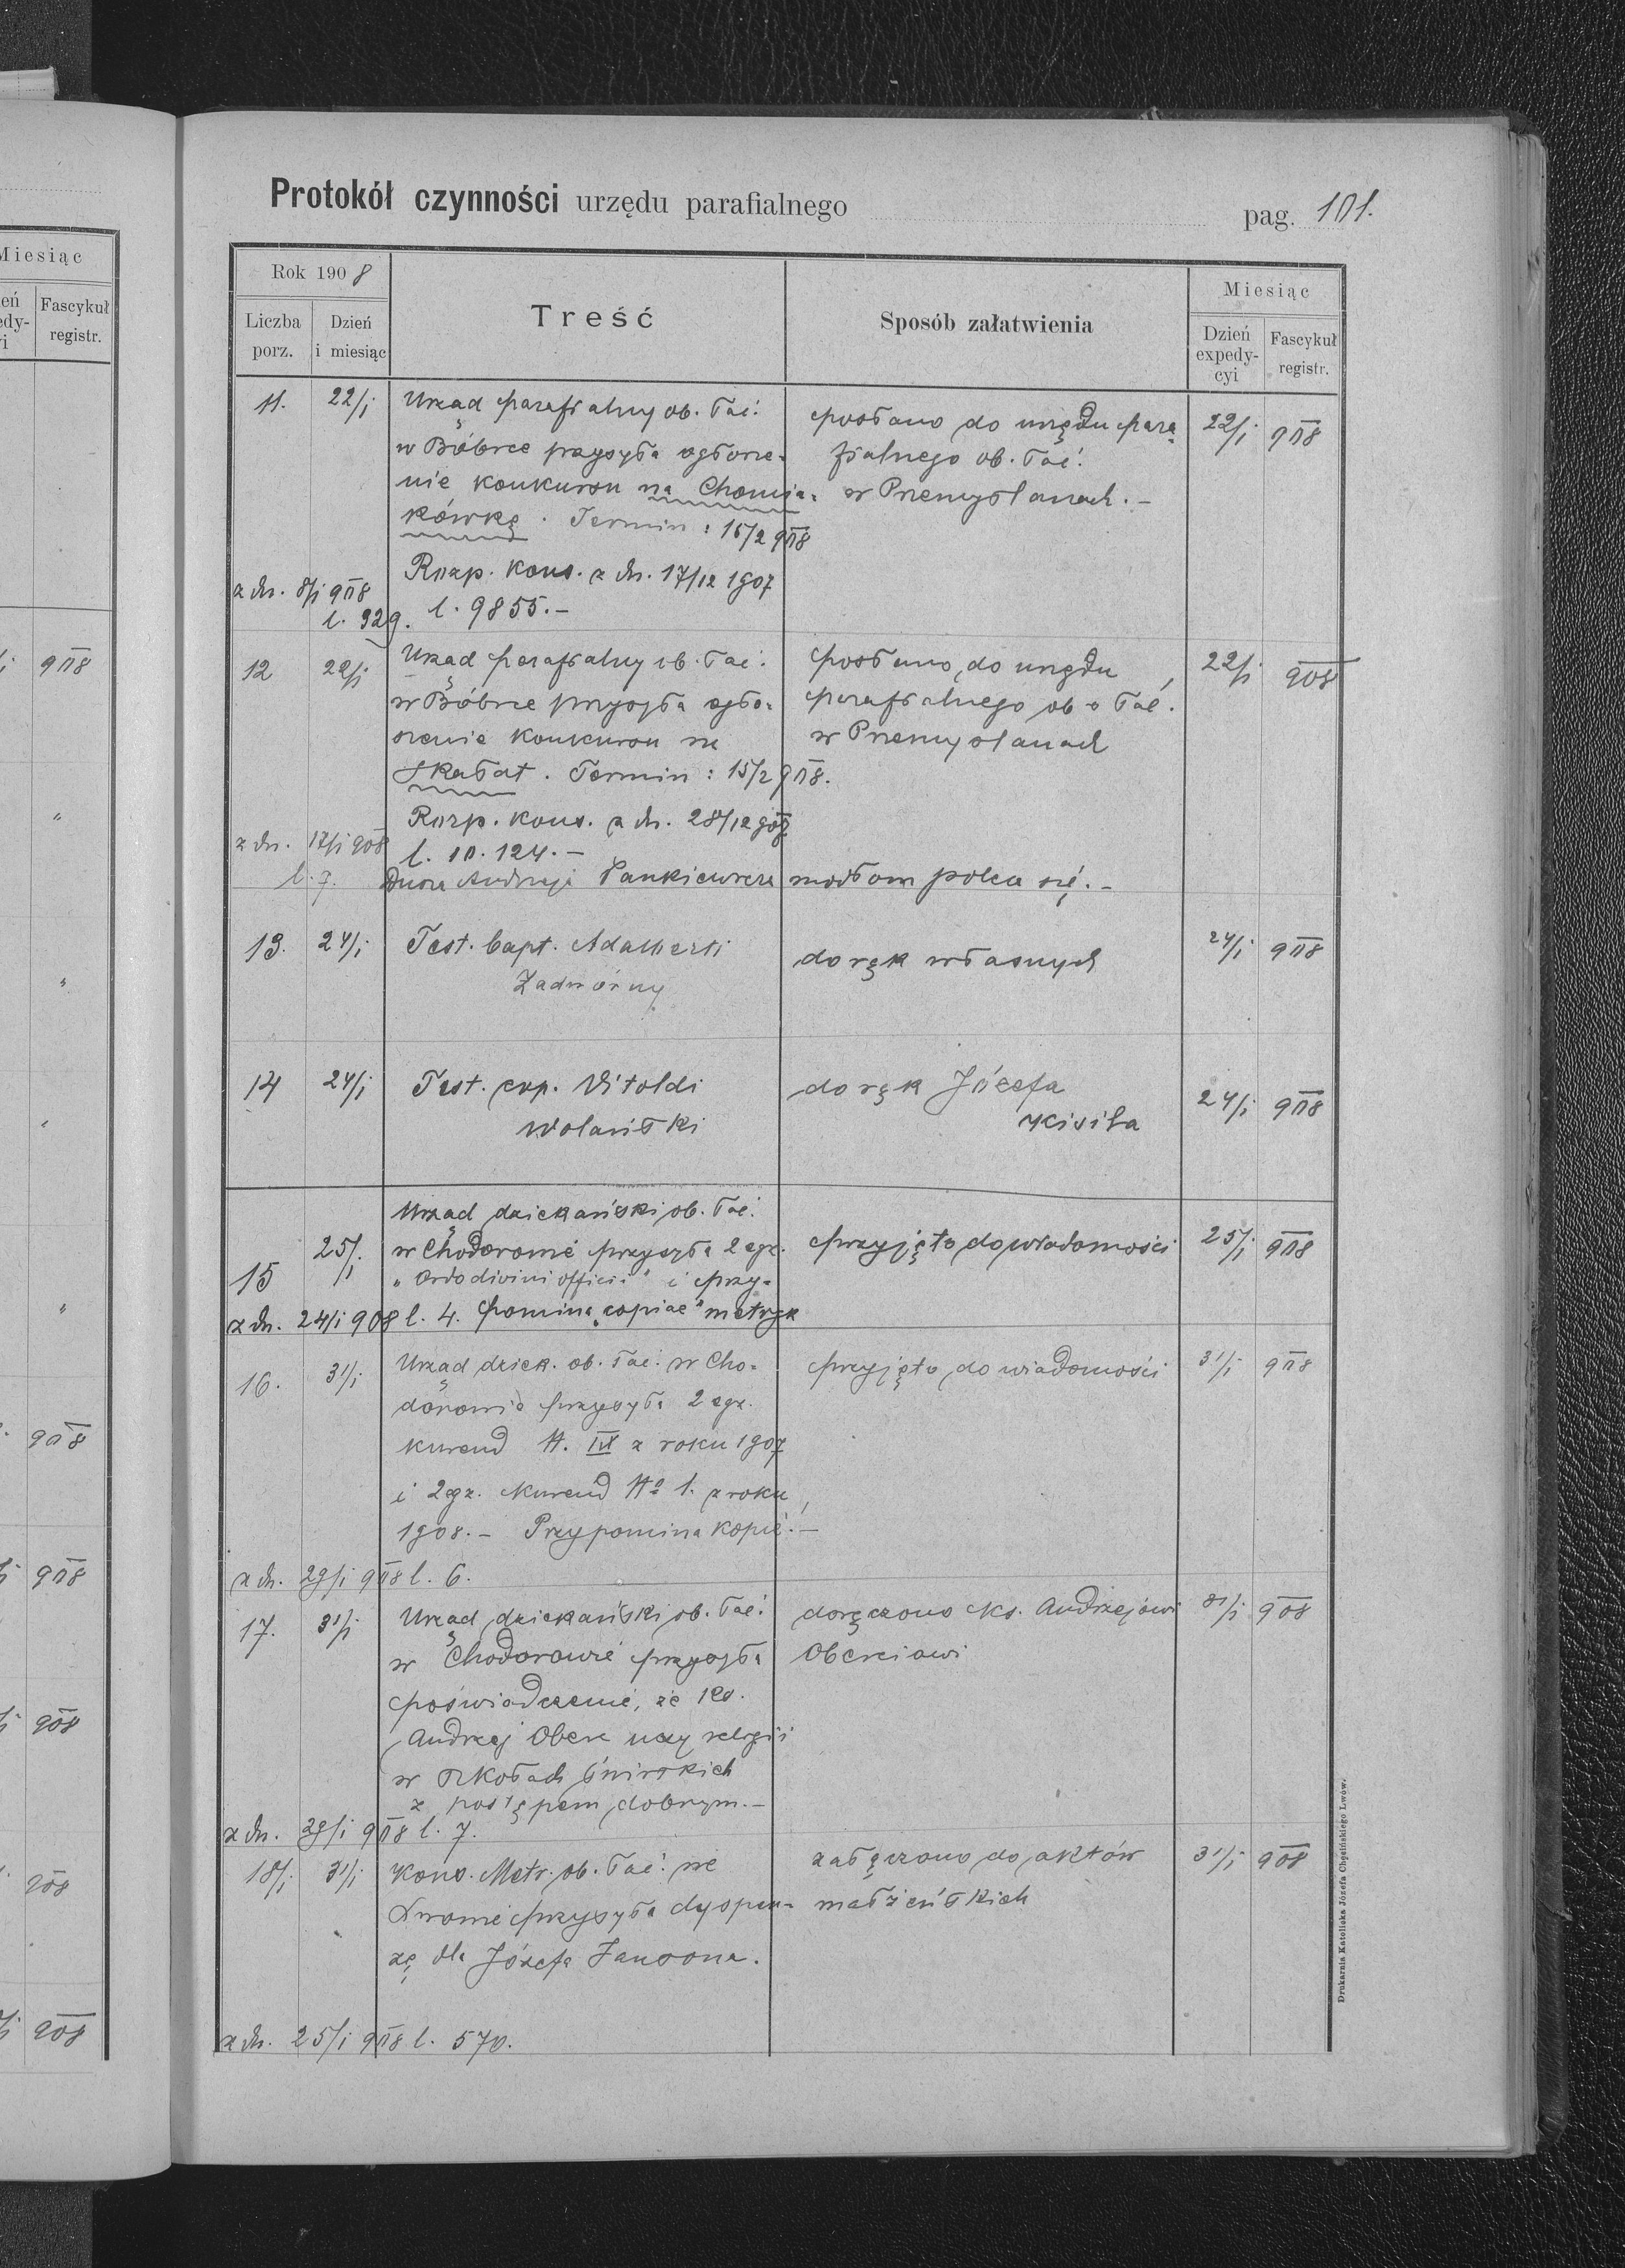 Protokół czynności urzędu parafialnego pag. 101.
Rok 1908
Liczba porz.
Dzień i miesiąc
Treść
Sposób załatwienia
Miesiąc
Dzień expedycyi
Fascykuł registr.
11. 22/1 Urząd parafialny ob. łać. posłano do urzędu para 22/1 908
w Bóbrce przysyła ogłosze- fialnego ob. łać.
nie konkursu na Chomia- w Przemyślanach. –
kówkę. Termin: 15/2 908
Rozp. kons. z dn. 17/12 1907
z dn. 8/1 908
l. 329. l. 9855. –
12 22/1 Urząd parafialny ob. łać. posłano do urzędu 22/1 908
w Bóbrce przysyła ogło- parafialnego ob. łać.
szenie konkursu na w Przemyślanach
Skałat. Termin: 15/2 908.
Rozp. kons. z dn. 28/12 907
z dn. 17/1 908 l. 10.124. –
l. 7. Dusza Andrzeja Pankiewicza modłom poleca się. –
13. 24/1 Test. bapt. Adalberti do rąk własnych 24/1 908
Zadwórny
14 24/1 Test. cop. Vitoldi do rąk Józefa 24/1 908
Wolański Kisiła
Urząd dziekański ob. łać.
15 25/1. w Chodorowie przysyła 2 egz. przyjęto do wiadomości 25/1 908
"Ordo divini officii" i przy-
z dn. 24/1 908 l. 4. pomina "copiae" metryk
16. 31/1 Urząd dziek. ob. łać. w Cho- przyjęto do wiadomości 31/1 908
dorowie przysyła 2 egz.
kurend N. IX z roku 1907
i 2 egz. kurend No 1. z roku
1908. – Przypomina kopie. –
z dn. 29/1 908 l. 6.
17. 31/1 Urząd dziekański ob. łać. doręczono ks. Andrzejowi 31/1 908
w Chodorowie przysyła Obercowi
poświadczenie, że ks.
Andrzej Oberc uczy religii
w szkołach świrskich
z postępem dobrym. –
z dn. 29/1 908 l. 7.
18/1 31/1 Kons. Metr. ob. łać. we załączono do aktów 31/1 908
Lwowie przysyła dyspen- małżeńskich
zę dla Józefa Jansona.
z dn. 25/1 908 l. 570.
Drukarnia Katolicka Józefa Chęcińskiego Lwów.
Miesiąc
Fascykuł registr.
908
908
908
908
908
908